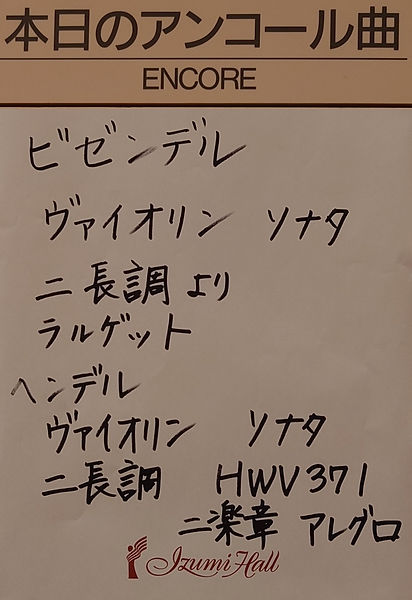 本日のアンコール曲
ENCORE
ビゼンデル
ヴァイオリン ソナタ
ニ長調より
ラルゲット
ヘンデル
ヴァイオリン ソナタ
ニ長調 HWV371
二楽章 アレグロ
Izumi Hall